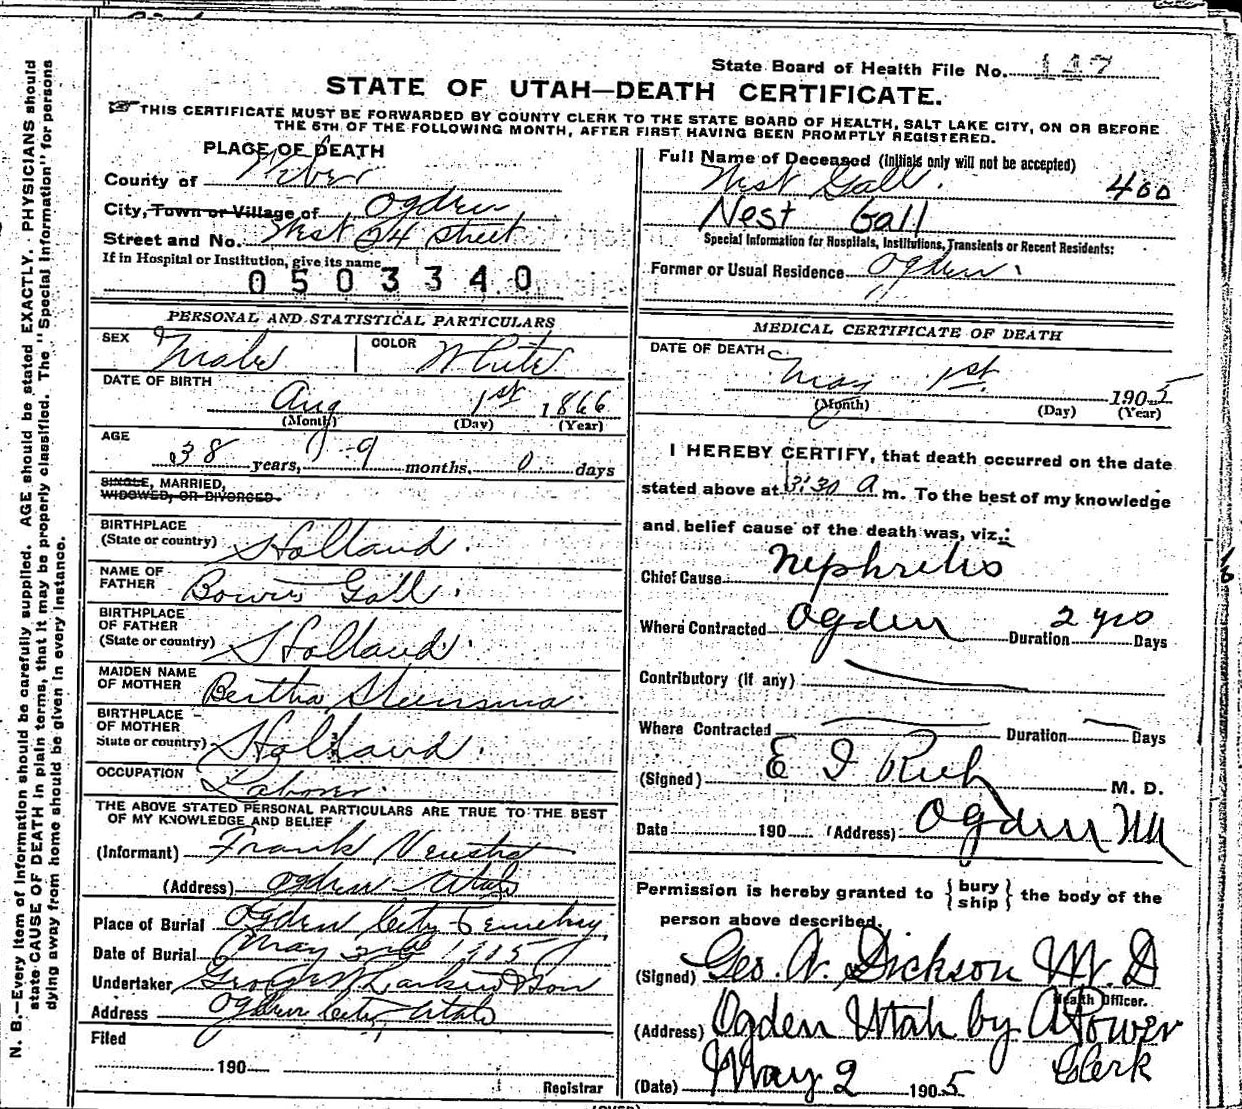 State Board of Health File No. 117
STATE OF UTAH—DEATH CERTIFICATE.
THIS CERTIFICATE MUST BE FORWARDED BY COUNTY CLERK TO THE STATE BOARD OF HEALTH, SALT LAKE CITY, ON OR BEFORE
THE 5TH OF THE FOLLOWING MONTH, AFTER FIRST HAVING BEEN PROMPTLY REGISTERED.
PLACE OF DEATH
County of Weber
City, Town or Village of Ogden
Street and No. West 24 Street
If in Hospital or Institution, give its name
0503340
PERSONAL AND STATISTICAL PARTICULARS
SEX Male COLOR White
DATE OF BIRTH
Aug 1st 1866
(Month) (Day) (Year)
AGE
38 years, 9 months, 0 days
SINGLE, MARRIED,
WIDOWED, OR DIVORCED.
BIRTHPLACE
(State or country) Holland.
NAME OF
FATHER Gall.
BIRTHPLACE
OF FATHER
(State or country) Holland.
MAIDEN NAME
OF MOTHER Bertha
BIRTHPLACE
OF MOTHER
State or country) Holland.
OCCUPATION Laborer.
THE ABOVE STATED PERSONAL PARTICULARS ARE TRUE TO THE BEST
OF MY KNOWLEDGE AND BELIEF
(Informant) Frank
(Address) Ogden Utah
Place of Burial Ogden City Cemetery
Date of Burial May 1905
Undertaker Larkin & Son
Address Ogden City Utah
Filed
190
Registrar
Full Name of Deceased (Initials only will not be accepted)
Nest Gall. 400
Nest Gall
Special Information for Hospitals, Institutions, Transients or Recent Residents:
Former or Usual Residence Ogden
MEDICAL CERTIFICATE OF DEATH
DATE OF DEATH
May 1st 1905
(Month) (Day) (Year)
I HEREBY CERTIFY, that death occurred on the date
stated above at 3:30 a m. To the best of my knowledge
and belief cause of the death was, viz.:
Chief Cause Nephritis
Where Contracted Ogden Duration 2 yrs Days
Contributory (if any)
Where Contracted Duration Days
(Signed) E I Rich M. D.
Date 190 (Address) Ogden
Permission is hereby granted to { bury ship } the body of the
person above described.
(Signed) Geo. A. Dickson M. D
Health Officer.
(Address) Ogden Utah by A Power
Clerk
(Date) May 2 1905
(OVER)
N. B.—Every item of information should be carefully supplied. AGE should be stated EXACTLY. PHYSICIANS should
state CAUSE OF DEATH in plain terms, that it may be properly classified. The "Special Information" for persons
dying away from home should be given in every instance.